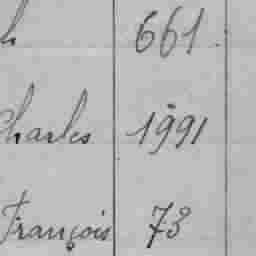 h 661
Charles 1991
François 73